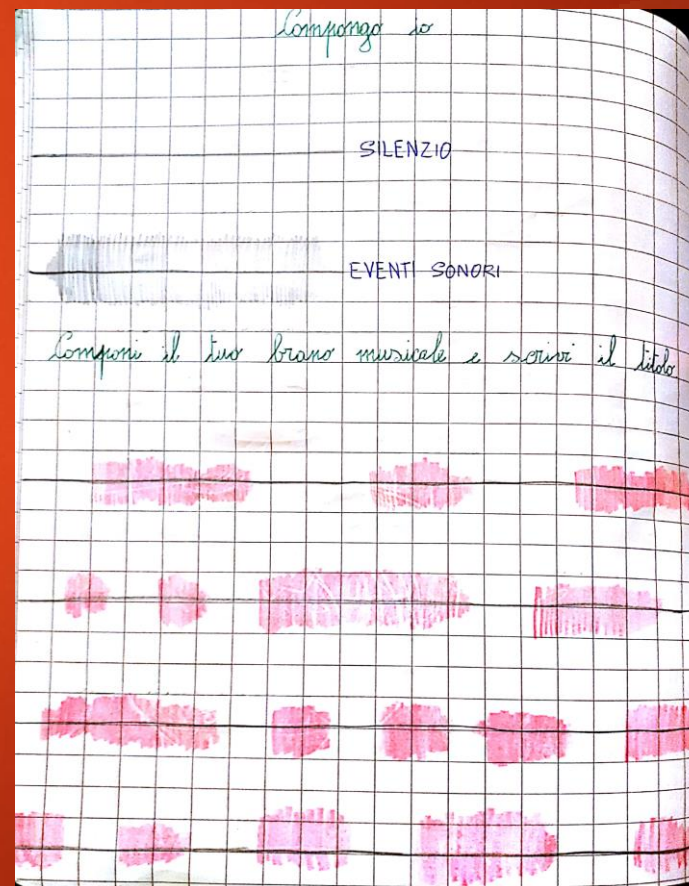 Compongo io
SILENZIO
EVENTI SONORI
Componi il tuo brano musicale e scrivi il titolo